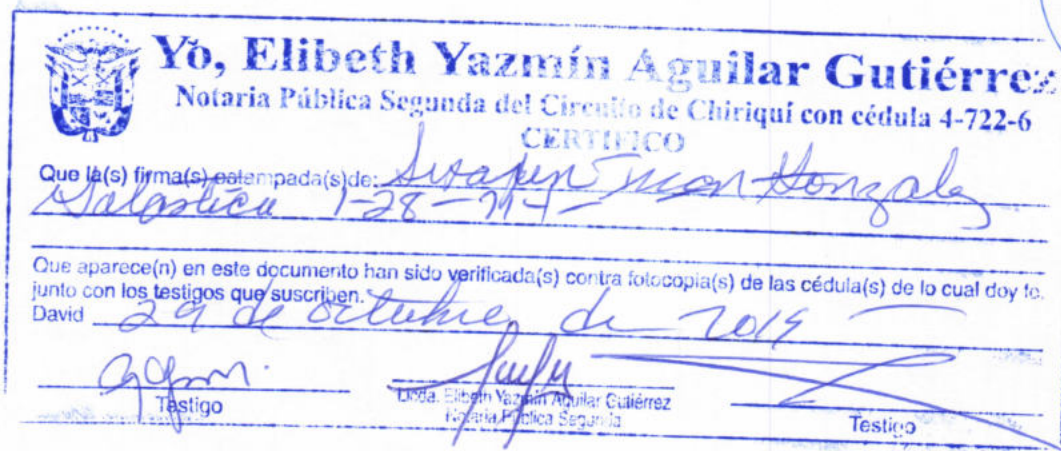 Yo, Elibeth Yazmín Aguilar Gutiérrez
Notaria Pública Segunda del Circuito de Chiriquí con cédula 4-722-6
CERTIFICO
Que la(s) firma(s) estampada(s)de: Gonzalez
1-28-
Que aparece(n) en este documento han sido verificada(s) contra fotocopia(s) de las cédula(s) de lo cual doy fe.
junto con los testigos que suscriben.
David 29 de octubre de 2019
Testigo
Licda. Elibeth Yazmín Aguilar Gutiérrez
Notaria Pública Segunda
Testigo